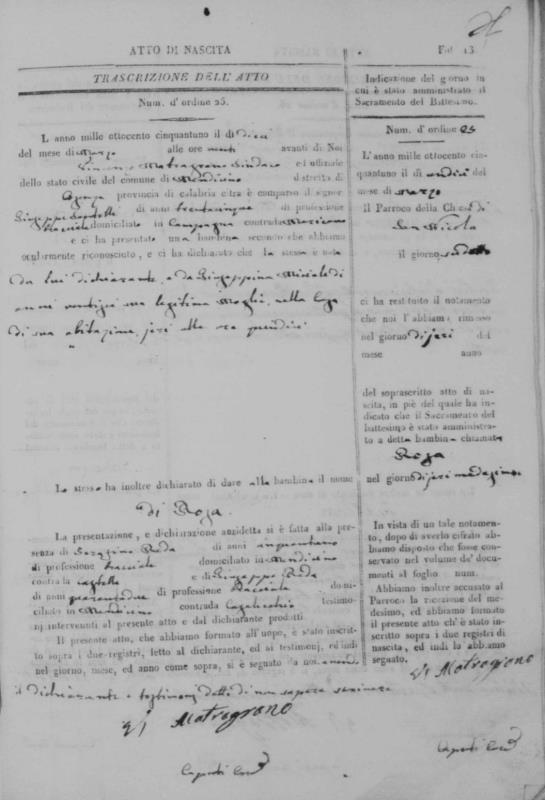 ATTO DI NASCITA
TRASCRIZIONE DELL' ATTO
Num. d' ordine 25.
L anno mille ottocento cinquantuno il di dieci
del mese di Marzo alle ore venti avanti di Noi
Matragrano Sindaco ed uffiziale
dello stato civile del comune di Mendicino distretto di
Cosenza provincia di calabria citra è comparso il signor
Giuseppe di anni trentacinque di professione
bracciale domiciliato in Campagna contrada
e ci ha presentato una bambina secondo che abbiamo
ocularmente riconosciuto, e ci ha dichiarato che la stessa è nata
da lui dichiarante, e da Giuseppina di
anni ventisei sua legittima Moglie, nella Casa
di sua abitazione, jeri alle ore quindici
Lo stesso ha inoltre dichiarato di dare alla bambina il nome
di Rosa.
La presentazione, e dichiarazione anzidetta si è fatta alla pre-
senza di Serafino Reda di anni cinquantano
di professione bracciale domiciliato in Mendicino
contrada Castello e di Giuseppe Reda
di anni di professione bracciale domi-
ciliato in Mendicino contrada Casalicchio testimo-
nj intervenuti al presente atto e dal dichiarante prodotti.
Il presente atto, che abbiamo formato all'uopo, è stato inscrit-
to sopra i due registri, letto al dichiarante, ed ai testimonj, ed indi
nel giorno, mese, ed anno come sopra, si è segnato da noi avendo
il dichiarante e testimonj detto di non sapere scrivere
Matragrano
Caputi
Fol. 13.
Indicazione del giorno in
cui è stato amministrato il
Sacramento del Battesimo.
Num. d' ordine 25
L'anno mille ottocento cin-
quantuno il di undici del
mese di Marzo
Il Parroco della Chiesa di
San Nicola
il giorno suddetto
ci ha restituito il notamento
che noi l'abbiamo rimesso
nel giorno di jeri del
mese anno
del soprascritto atto di na-
scita, in piè del quale ha in-
dicato che il Sacramento del
battesimo è stato amministra-
to a detta bambina chiamata
Rosa
nel giorno di jeri medesimo
In vista di un tale notamen-
to, dopo di averlo cifrato ab-
biamo disposto che fosse con-
servato nel volume de' docu-
menti al foglio num.
Abbiamo inoltre accusato al
Parroco la ricezione del me-
desimo, ed abbiamo formato
il presente atto ch' è stato in-
scritto sopra i due registri di
nascita, ed indi lo abbiamo
segnato.
Matragrano
Caputi